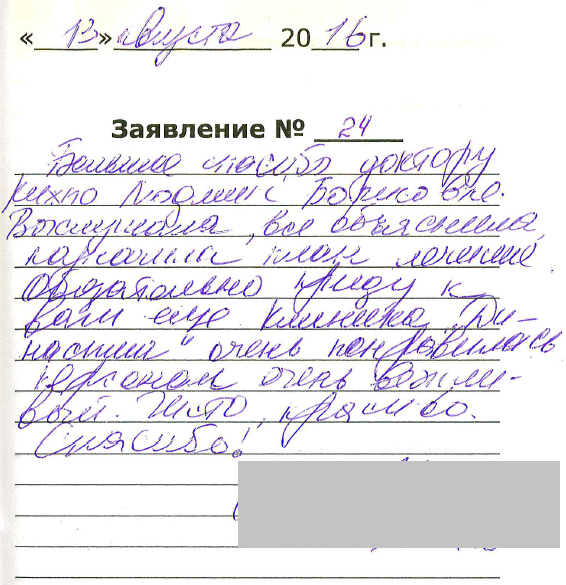 «13» августа 2016 г.
Заявление № 24
Большое спасибо доктору
Кихно Людмиле Борисовне.
Выслушала, все объяснила,
написала план лечения.
Обязательно приду к
вам еще. Клиника "Ди-
настия" очень понравилась
персонал очень вежли-
вый. Чисто, красиво.
Спасибо!